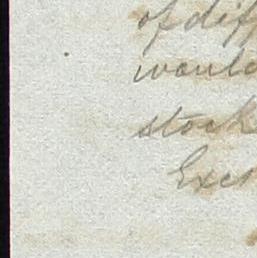 of diff
would
stock
Exc